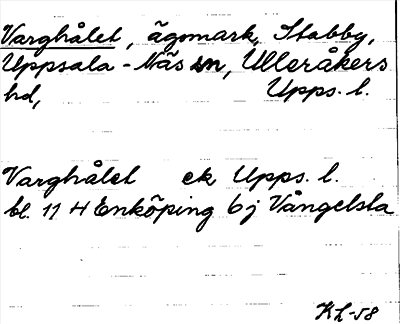 Varghålet, ägomark, Stabby,
Uppsala-Näs sn, Ulleråkers
hd, Upps. l.
Varghålet ek Upps. l.
bl. 11 H Enköping 6j Vångelsta
KL-58